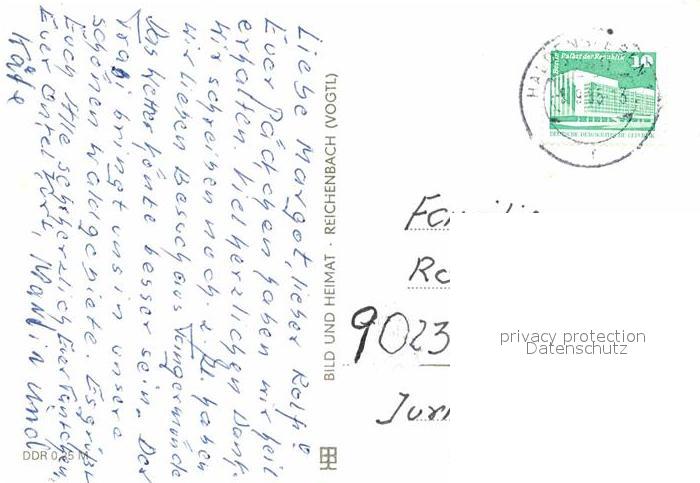 Liebe Margot, lieber Ralf!
Euer Päckchen haben wir heil
erhalten. Vielherzlichen Dank.
Wir schreiben noch. z. Zt. haben
wir lieben Besuch aus Tangermünde
Das Wetter könte besser sein. Der
Trabi bringt uns in unsere
schönen Waldgebiete. Es grüßt
Euch Alle sehr herzlich Euer Tantchen,
Euer Onkel Kurt, Martin und
Käte
DDR 0,25 M
BILD UND HEIMAT · REICHENBACH (VOGTL)
Berlin Palast der Republik
10
DEUTSCHE DEMOKRATISCHE REPUBLIK
Familie
9023
privacy protection
Datenschutz